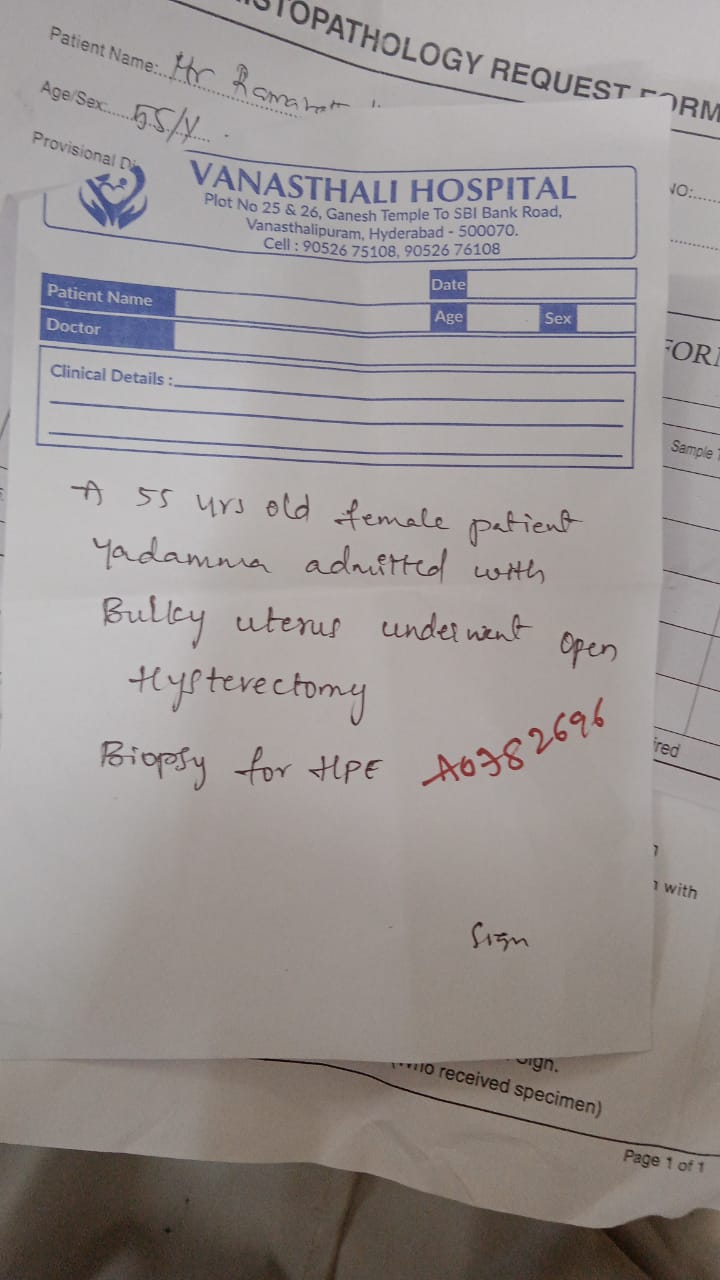 STOPATHOLOGY REQUEST FORM
Patient Name:.. Mr
Age/Sex:..... 55/Y....
Provisional
NO:.....
VANASTHALI HOSPITAL
Plot No 25 & 26, Ganesh Temple To SBI Bank Road,
Vanasthalipuram, Hyderabad - 500070.
Cell : 90526 75108, 90526 76108
Patient Name
Date
Doctor
Age
Sex
Clinical Details :
FOR
Sample
A 55 yrs old female patient
Yadamma admitted with
Bulky uterus underwent open
Hysterectomy
Biopsy for HPE A0782696
ired
with
Sign
Sign.
received specimen)
Page 1 of 1